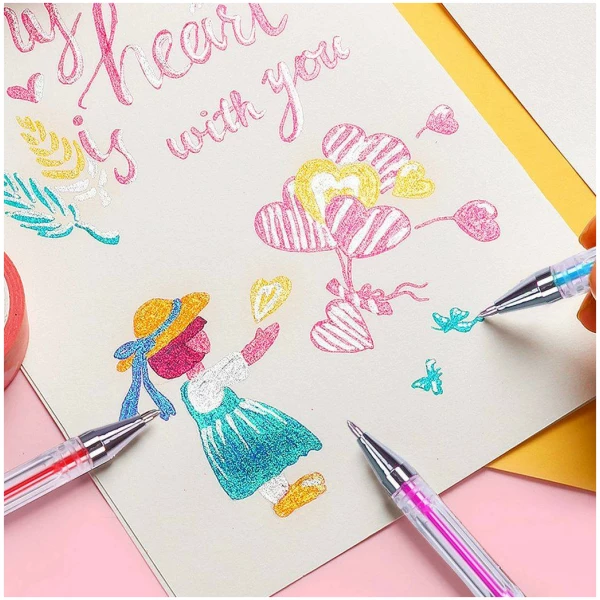 my
heart
is with you